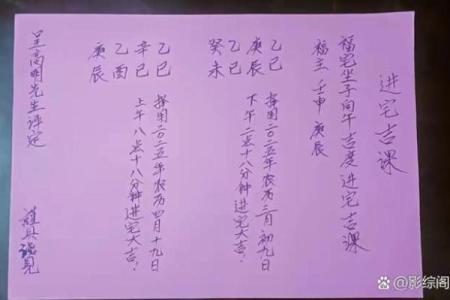 进宅吉课
福宅坐子向午吉度进宅吉课
福主 壬申 庚辰
乙巳
庚辰
乙巳
癸未
择用二〇二五年农历三月初九日
下午二点十八分钟进宅大吉!
乙巳
辛巳
乙酉
庚辰
择用二〇二五年农历四月十九日
上午八点十八分钟进宅大吉!
呈高明先生评定
谨具
@影综阁